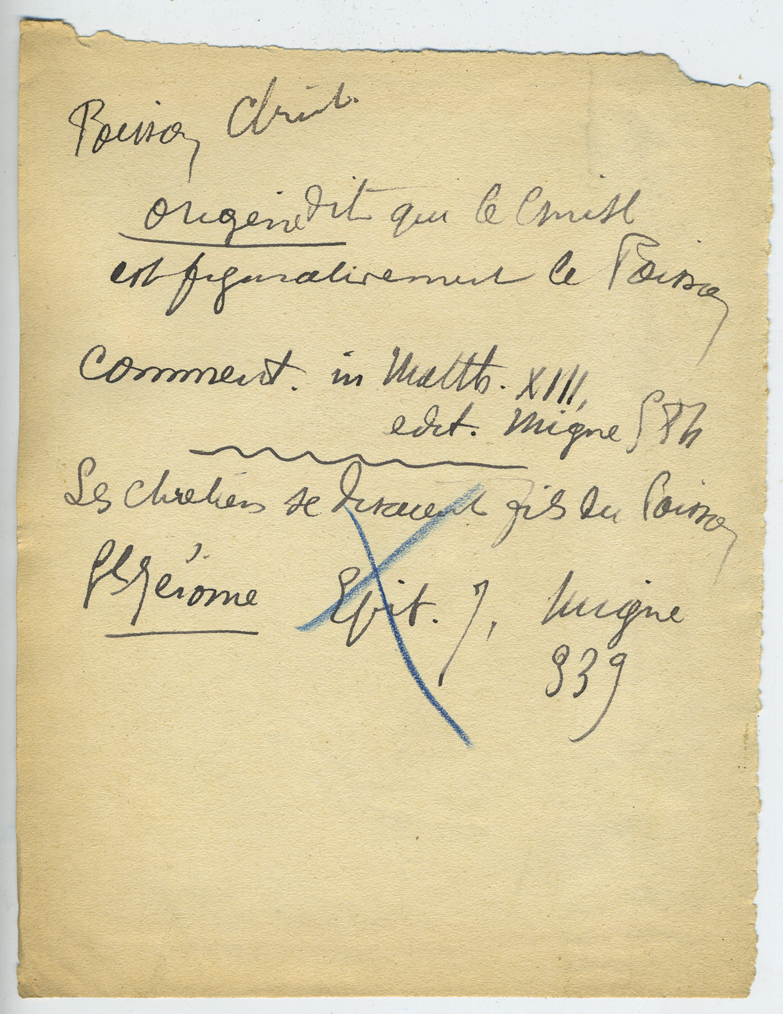 Poisson Christ.
Origène dit que le Christ
est figurativement le Poisson
Comment. in Matth. XIII,
edit. Migne
Les chrétiens se disaient fils du Poisson
St Jérome Epit. 7, Migne
339